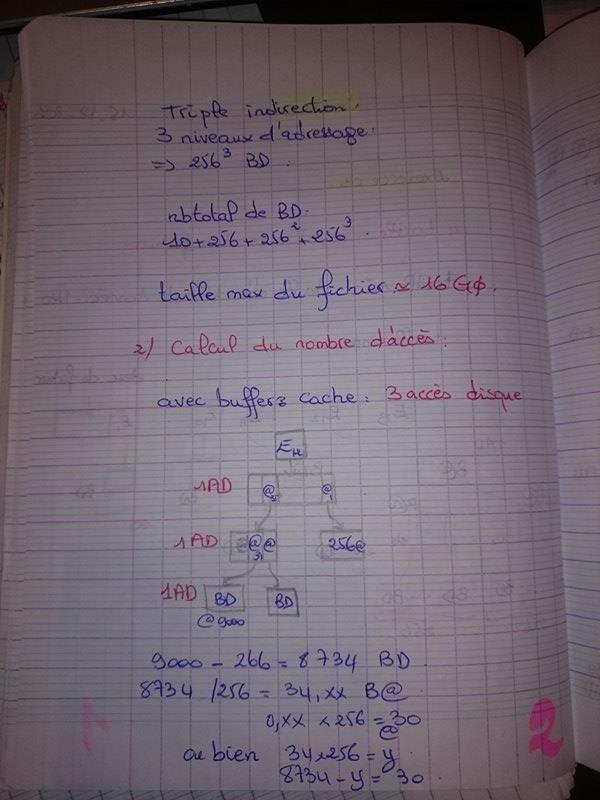 Triple indirection.
3 niveaux d'adressage.
=> 256³ BD.
nbtotal de BD.
10 + 256 + 256² + 256³.
taille max du fichier ≈ 16 GO.
2) Calcul du nombre d'accès :
avec buffers cache : 3 accès disque
1AD
@
@
1AD
@@
256@
1AD
BD
BD
@9000
9000 - 266 = 8734 BD.
8734 /256 = 34,xx B@
0,xx x 256 = 30
@
ou bien 34x256 = y
8734 - y = 30.
2